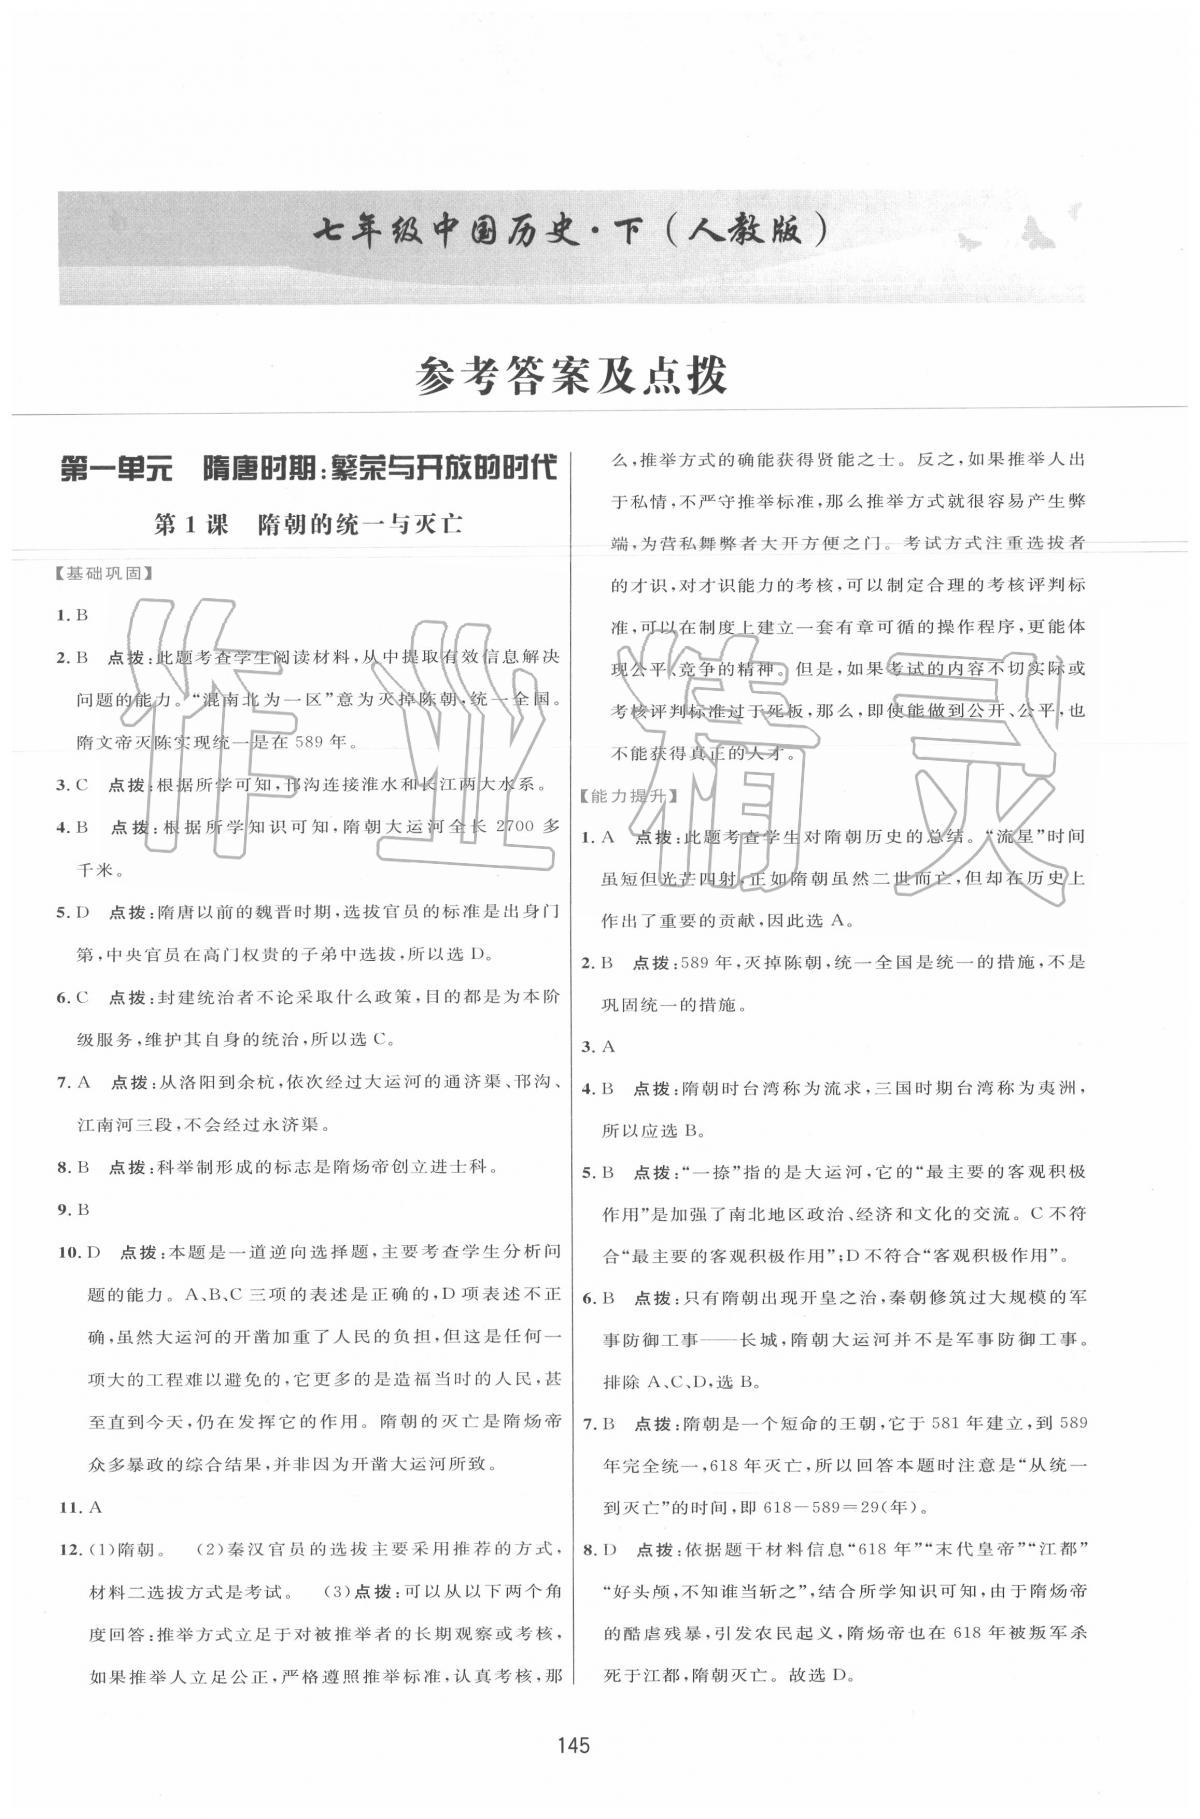 七年级中国历史·下（人教版）
参考答案及点拨
第一单元　隋唐时期:繁荣与开放的时代
第 1 课　隋朝的统一与灭亡
【基础巩固】
1. B
2. B　点拨:此题考查学生阅读材料,从中提取有效信息解决
问题的能力。“混南北为一区”意为灭掉陈朝,统一全国。
隋文帝灭陈实现统一是在 589 年。
3. C　点拨:根据所学可知,邗沟连接淮水和长江两大水系。
4. B　点拨:根据所学知识可知,隋朝大运河全长 2700 多
千米。
5. D　点拨:隋唐以前的魏晋时期,选拔官员的标准是出身门
第,中央官员在高门权贵的子弟中选拔,所以选 D。
6. C　点拨:封建统治者不论采取什么政策,目的都是为本阶
级服务,维护其自身的统治,所以选 C。
7. A　点拨:从洛阳到余杭,依次经过大运河的通济渠、邗沟、
江南河三段,不会经过永济渠。
8. B　点拨:科举制形成的标志是隋炀帝创立进士科。
9. B
10. D　点拨:本题是一道逆向选择题,主要考查学生分析问
题的能力。A、B、C 三项的表述是正确的,D 项表述不正
确,虽然大运河的开凿加重了人民的负担,但这是任何一
项大的工程难以避免的,它更多的是造福当时的人民,甚
至直到今天,仍在发挥它的作用。隋朝的灭亡是隋炀帝
众多暴政的综合结果,并非因为开凿大运河所致。
11. A
12. (1)隋朝。　(2)秦汉官员的选拔主要采用推荐的方式,
材料二选拔方式是考试。　(3)点拨:可以从以下两个角
度回答:推举方式立足于对被推举者的长期观察或考核,
如果推举人立足公正,严格遵照推举标准,认真考核,那
么,推举方式的确能获得贤能之士。反之,如果推举人出
于私情,不严守推举标准,那么推举方式就很容易产生弊
端,为营私舞弊者大开方便之门。考试方式注重选拔者
的才识,对才识能力的考核,可以制定合理的考核评判标
准,可以在制度上建立一套有章可循的操作程序,更能体
现公平、竞争的精神。但是,如果考试的内容不切实际或
考核评判标准过于死板,那么,即使能做到公开、公平,也
不能获得真正的人才。
【能力提升】
1. A　点拨:此题考查学生对隋朝历史的总结。“流星”时间
虽短但光芒四射,正如隋朝虽然二世而亡,但却在历史上
作出了重要的贡献,因此选 A。
2. B　点拨:589 年,灭掉陈朝,统一全国是统一的措施,不是
巩固统一的措施。
3. A
4. B　点拨:隋朝时台湾称为流求,三国时期台湾称为夷洲,
所以应选 B。
5. B　点拨:“一捺”指的是大运河,它的“最主要的客观积极
作用”是加强了南北地区政治、经济和文化的交流。C 不符
合“最主要的客观积极作用”;D 不符合“客观积极作用”。
6. B　点拨:只有隋朝出现开皇之治,秦朝修筑过大规模的军
事防御工事——长城,隋朝大运河并不是军事防御工事。
排除 A、C、D,选 B。
7. B　点拨:隋朝是一个短命的王朝,它于 581 年建立,到 589
年完全统一,618 年灭亡,所以回答本题时注意是“从统一
到灭亡”的时间,即 618－589＝29(年)。
8. D　点拨:依据题干材料信息“618 年”“末代皇帝”“江都”
“好头颅,不知谁当斩之”,结合所学知识可知,由于隋炀帝
的酷虐残暴,引发农民起义,隋炀帝也在 618 年被叛军杀
死于江都,隋朝灭亡。故选 D。
作业精灵
145